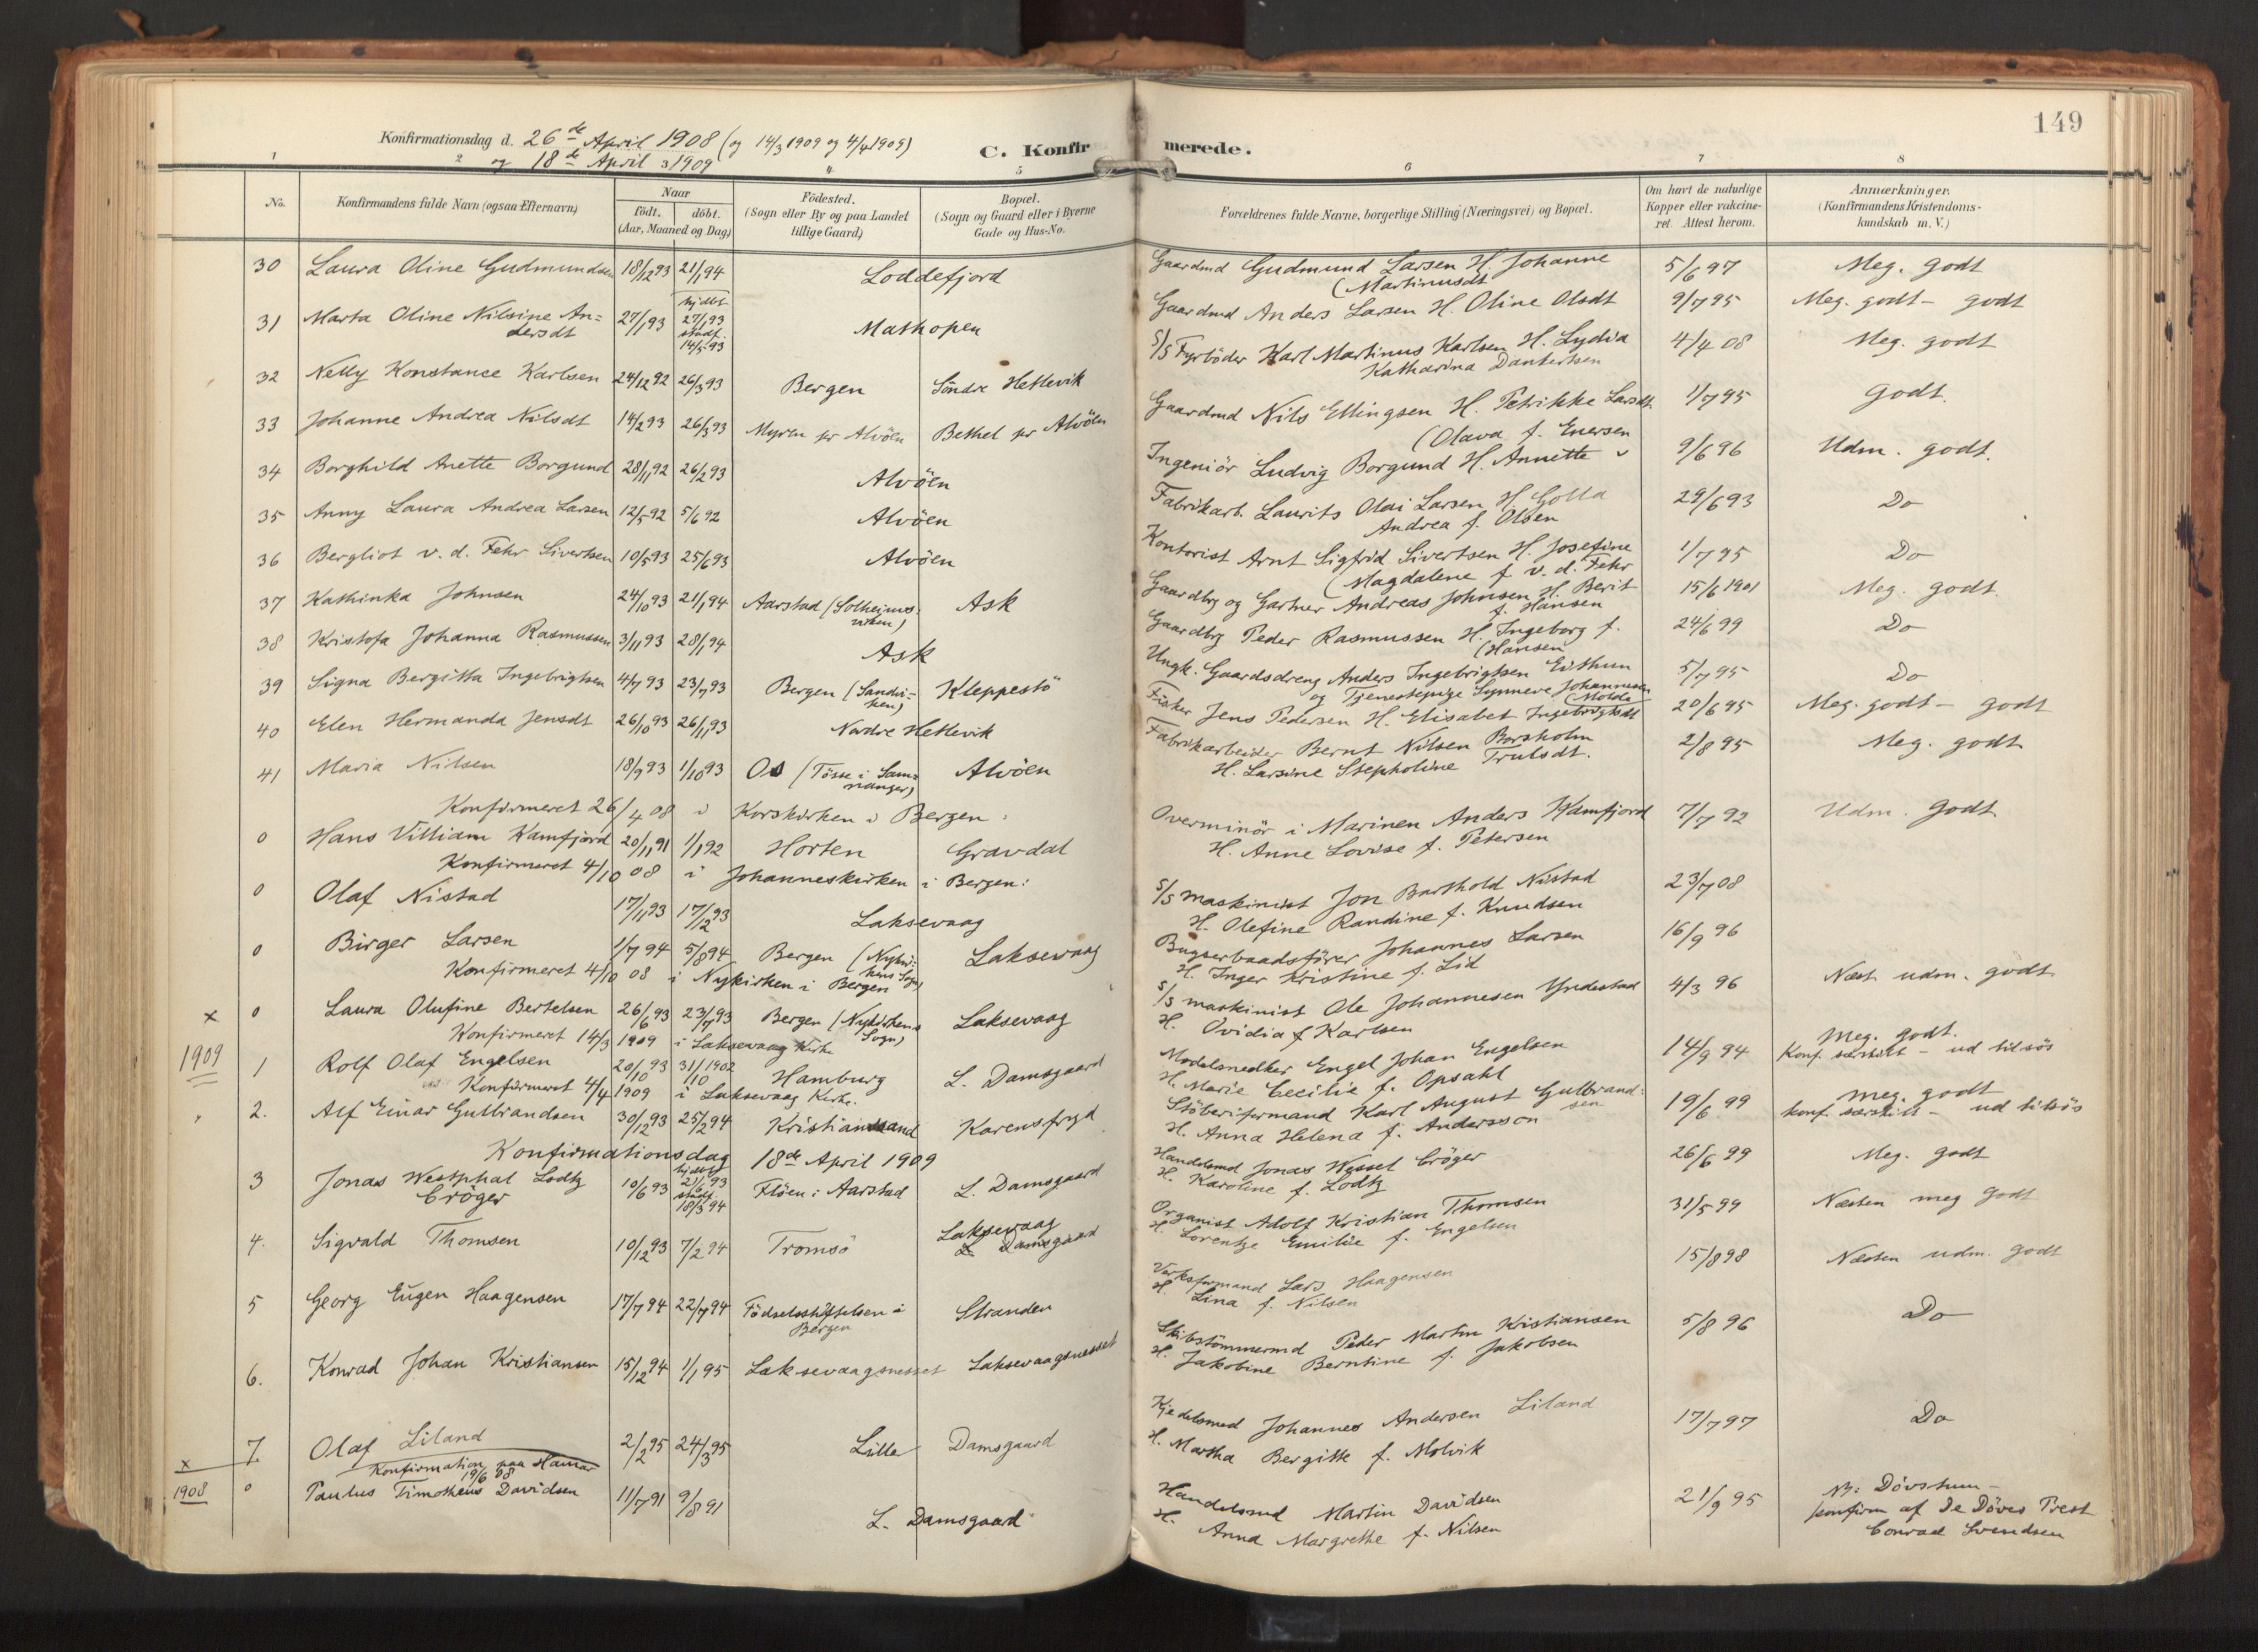 149
Konfirmationsdag d. 26de April 1908 (og 14/3 1909 og 4/4 1909)
og 18de April 1909
C. Konfirmerede.
1 2 3 4 5 6 7 8
No. Konfirmandens fulde Navn (ogsaa Efternavn) Naar födt. döbt. (Aar, Maaned og Dag) Födested. (Sogn eller By og paa Landet tillige Gaard) Bopæl. (Sogn og Gaard eller i Byerne Gade og Hus-No. Forældrenes fulde Navne, borgerlige Stilling (Næringsvei) og Bopæl. Om havt de naturlige Kopper eller vakcineret. Attest herom. Anmærkninger. (Konfirmandens Kristendomskundskab m. V.)
30 Laura Oline Gudmundsen 18/12 93 21/1 94 Loddefjord Gaardmd Gudmund Larsen H. Johanne (Martinusdt 5/6 97 Meg. godt
31 Marta Oline Nilsine Andersdt 27/1 93 hjdbt 27/1 93 stadf. 14/5 93 Mathopen Gaardmd Anders Larsen H. Oline Olsdt 9/7 95 Meg. godt - godt
32 Nelly Konstance Karlsen 24/12 92 26/3 93 Bergen Söndre Hetlevik S/S Fyrböder Karl Martinus Karlsen H. Lydia Katharina Dankertsen 4/4 08 Meg. godt
33 Johanne Andrea Nilsdt 14/2 93 26/3 93 Myren pr Alvöen Bethel pr Alvöen Gaardmd Nils Ellingsen H. Petrikke Larsdt. 1/7 95 Godt.
34 Borghild Anette Borgund 28/11 92 26/2 93 Alvöen Ingeniör Ludvig Borgund H. Annette (Olava f. Enersen 9/6 96 Udm. godt.
35 Anny Laura Andrea Larsen 12/5 92 5/6 92 Alvöen Fabrikarb. Laurits Olai Larsen H. Golla Andrea f. Olsen 29/6 93 Do
36 Bergliot v. d. Fehr Sivertsen 10/5 93 25/6 93 Alvöen Kontorist Arnt Sigfrid Sivertsen H. Josefine (Magdalene f v. d. Fehr 1/7 95 Do
37 Kathinka Johnsen 24/10 93 21/1 94 Aarstad (Solheimsviken) Ask Gaardbrg og Gartner Andreas Johnsen H. Berit f. Hansen 15/6 1901 Meg. godt.
38 Kristofa Johanna Rasmussen 3/11 93 28/1 94 Ask Gaardbrg Peder Rasmussen H. Ingeborg f. (Hansen 24/6 99 Do
39 Signa Bergitta Ingebrigtsen 4/7 93 23/7 93 Bergen (Sandviken) Kleppestö Ungk. Gaardsdreng Anders Ingebrigtsen Eithun og Tjenestepige Synneve Johannesen (Molde 5/7 95 Do
40 Elen Hermanda Jensdt 26/10 93 26/11 93 Nordre Hetlevik Fisker Jens Pedersen H. Elisabet Ingebrigtsdt 20/6 95 Meg. godt - godt
41 Maria Nilsen 18/9 93 1/10 93 Os (Tösse i Samnanger) Alvöen Fabrikarbeider Bernt Nilsen Borsholm H. Larsine Stepholine Trulsdt. 2/8 95 Meg. godt
Konfirmeret 26/4 08 i Korskirken i Bergen:
0 Hans Villiam Kamfjord 20/11 91 1/1 92 Horten Gravdal Overminör i Marinen Anders Kamfjord H. Anne Lovise f. Petersen 7/7 92 Udm. Godt
Konfirmeret 4/10 08 i Johanneskirken i Bergen:
0 Olaf Nistad 17/1 93 17/2 93 Laksevaag S/S maskinist Jon Barthold Nistad H. Olefine Randine f. Knudsen 23/7 08
0 Birger Larsen 1/7 94 5/8 94 Bergen (Nykirkens Sogn) Laksevaag Bugserbaadsförer Johannes Larsen H. Inger Kristine f. Lid 16/9 96
Konfirmeret 4/10 08 i Nykirken i Bergen
x 0 Laura Olufine Bertelsen 26/6 93 23/7 93 Bergen (Nykirkens Sogn) Laksevaag S/S maskinist Ole Johannesen Yndestad H. Ovidia f Karlsen 4/3 96 Næst. udm. godt
Konfirmeret 14/3 1909 i Laksevaag Kirke
1909 1 Rolf Olaf Engelsen 20/10 93 31/10 1902 Hamburg L. Damsgaard Modelsnedker Engel Johan Engelsen H. Marie Cecilie f. Opsahl 14/9 94 Meg. godt. Konf. særskilt - ud tilsös
Konfirmeret 4/4 1909 i Laksevaag Kirke.
2. Alf Einar Gulbrandsen 30/12 93 25/2 94 Kristiansand Karensfryd Stöberiformand Karl August Gulbrandsen H. Anna Helena f. Andersson 19/6 99 meg. godt konf. særskilt - ud tilsös
Konfirmationsdag 18de April 1909
3 Jonas Westphal Lodtz Cröger 10/6 93 hjdbt 21/6 93 stadf. 18/3 94 Flöen i Aarstad L. Damsgaard Handelsmd Jonas Wessel Cröger H. Karoline f. Lodtz 26/6 99 Meg. godt
4. Sigvald Thomsen 10/12 93 7/2 94 Tromsö Laksevaag L Damsgaard Organist Adolf Kristian Thomsen H. Lorentze Emilie f. Engelsen 31/5 99 Næsten meg godt
5 Georg Eugen Haagensen 17/7 94 22/7 94 Födselsstiftelsen i Bergen Stranden Verksformand Lars Haagensen H. Lina f. Nilsen 15/8 98 Næsten udm. godt
6. Konrad Johan Kristiansen 15/12 94 1/1 95 Laksevaagsnesset Laksevaagsnesset Skibstömmermd Peder Martin Kristiansen H. Jakobine Berntine f. Jakobsen 5/8 96 Do
7. Olaf Liland 2/2 95 24/3 95 Lille Damsgaard Kjedelsmed Johannes Andersen Liland H. Martha Bergitte f. Molvik 17/7 97 Do
x Konfirmation paa Hamar 19/6 08
1908 0 Paulus Timotheus Davidsen 11/7 91 9/8 91 L. Damsgaard Handelsmd Martin Davidsen H. Anna Margrethe f. Nilsen 21/9 95 NB: Dövstum - konfirm af De Döves Prest Conrad Svendsen